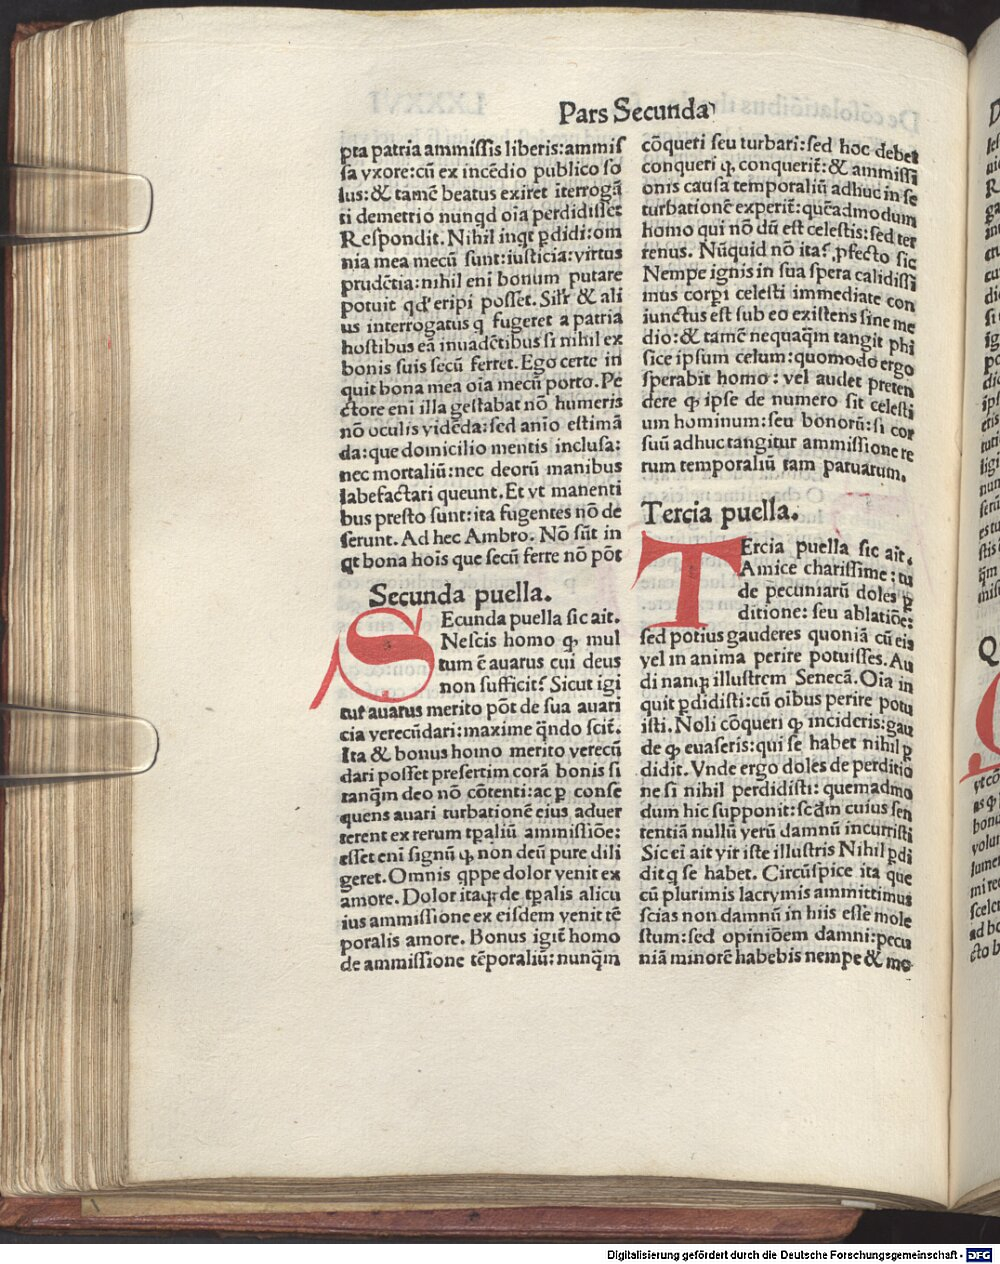 Pars Secunda
pta patria ammissis liberis:ammis
sa vxore:cū ex incēdio publico so
lus:& tamē beatus exiret iterrogā
ti demetrio nunqd oia perdidisset
Respondit. Nihil inqt ꝑdidi:om
nia mea mecū sunt:iusticia:virtus
prudētia:nihil eni bonum putare
potuit qd' eripi posset. Silr & ali
us interrogatus q fugeret a patria
hostibus eā inuadētibus si nihil ex
bonis suis secū ferret. Ego certe in
quit bona mea oia mecū porto. Pe
ctore eni illa gestabat nō humeris
nō oculis vidēda:sed anio estimā
da:que domicilio mentis inclusa:
nec mortaliū:nec deorū manibus
labefactari queunt. Et vt manenti
bus presto sunt:ita fugentes nō de
serunt. Ad hec Ambro. Nō sūt in
qt bona hois que secū ferre nō pōt
Secunda puella.
SEcunda puella sic ait.
Nescis homo ꝙ mul
tum ē auarus cui deus
non sufficit? Sicut igi
tur auarus merito pōt de sua auari
cia verecūdari:maxime qndo scit.
Ita & bonus homo merito verecū
dari posset presertim corā bonis si
tanqm deo nō cōtenti:ac ꝑ conse
quens auari turbationē eius aduer
terent ex rerum tpaliū ammissiōe:
esset eni signū ꝙ non deū pure dili
geret. Omnis qppe dolor venit ex
amore. Dolor itaqꝫ de tpalis alicu
ius ammissione ex eisdem venit tē
poralis amore. Bonus igit homo
de ammissione tēporaliū:nunqm
cōqueri seu turbari:sed hoc debet
conqueri ꝙ conquerit:& ammissi
onis causa temporaliū adhuc in se
turbationē experit:quēadmodum
homo qui nō dū est celestis:sed ter
renus. Nūquid nō ita? ꝓfecto sic
Nempe ignis in sua spera calidissi
mus corpi celesti immediate con
iunctus est sub eo existens sine me
dio:& tamē nequaqm tangit phi
sice ipsum celum:quomodo ergo
sperabit homo: vel audet preten
dere ꝙ ipse de numero sit celesti
um hominum:seu bonorū:si cor
suū adhuc tangitur ammissione re
rum temporaliū tam paruarum.
Tercia puella.
TErcia puella sic ait.
Amice charissime: tu
de pecuniarū doles ꝑ
ditione: seu ablatiōe:
sed potius gauderes quoniā cū eis
vel in anima perire potuisses. Au
di nanqꝫ illustrem Senecā. Oia in
quit ꝑdidisti:cū oibus perire potu
isti. Noli cōqueri ꝙ incideris:gau
de ꝙ euaseris:qui se habet nihil ꝑ
didit. Vnde ergo doles de perditio
ne si nihil perdidisti: quemadmo
dum hic supponit:scdm cuius sen
tentiā nullū verū damnū incurristi
Sic ei ait vir iste illustris Nihil ꝑdi
dit q se habet. Circūspice ita que
cū plurimis lacrymis ammittimus
scias non damnū in hiis esse mole
stum:sed opiniōem damni:pecu
niā minorē habebis nempe & mo
Digitalisierung gefördert durch die Deutsche Forschungsgemeinschaft - DFG